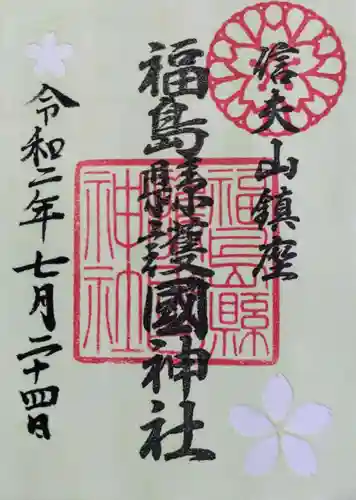 信夫山鎮座
福島縣護國神社
令和二年七月二十四日
福島縣護國神社